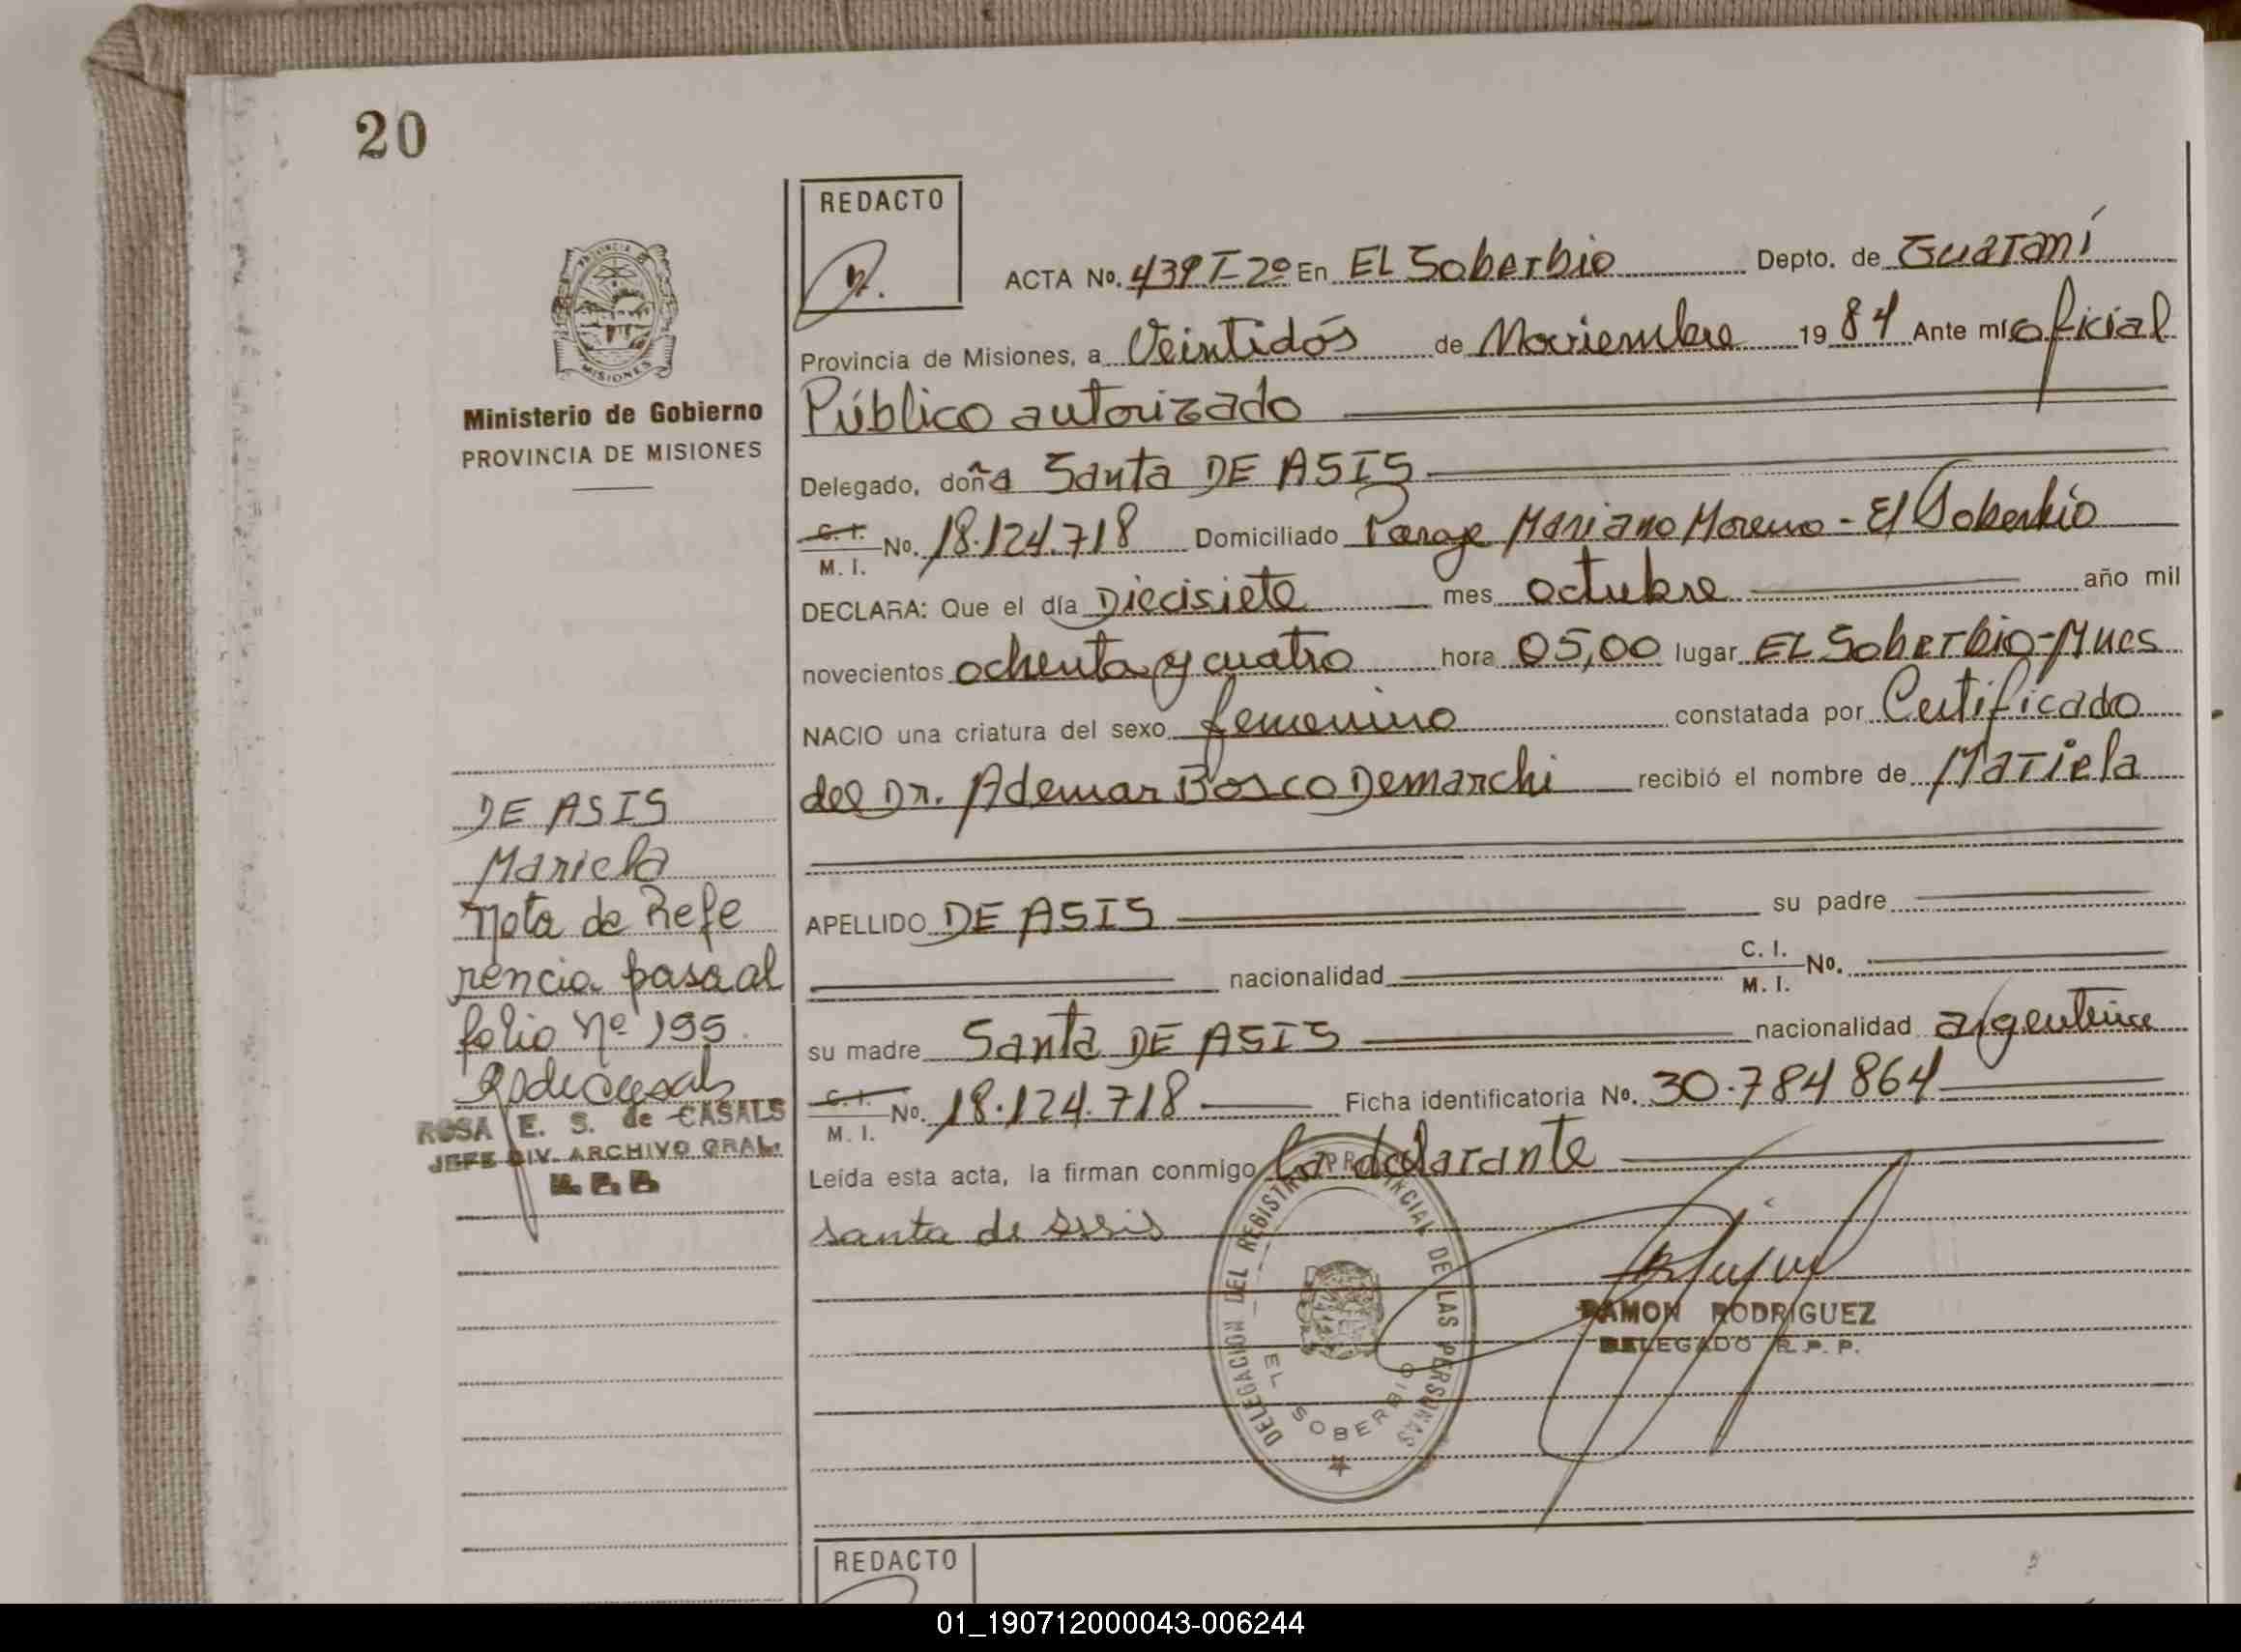 20
REDACTO
ACTA No. 439 T-2º En EL Soberbio Depto. de Guaraní
Provincia de Misiones, a Veintidós de Noviembre 1984 Ante mí oficial
Ministerio de Gobierno
PROVINCIA DE MISIONES
Público autorizado
Delegado, doña Santa DE ASIS
C. I.
M. I. No. 18.124.718 Domiciliado Paraje Mariano Moreno - El Soberbio
DECLARA: Que el día Diecisiete mes octubre año mil
novecientos ochenta y cuatro hora 05,00 lugar EL Soberbio-Mnes
NACIO una criatura del sexo femenino constatada por Certificado
del Dr. Ademar Bosco Demarchi recibió el nombre de Mariela
DE ASIS
Mariela
Nota de Refe
rencia pasa al
folio Nº 195
ROSA E. S. de CASALS
JEFE DIV. ARCHIVO GRAL.
APELLIDO DE ASIS su padre
nacionalidad C. I.
M. I. No.
su madre Santa DE ASIS nacionalidad argentina
C. I.
M. I. No. 18.124.718 Ficha identificatoria No. 30.784864
Leída esta acta, la firman conmigo la declarante
santa de Assis
DELEGACION DEL REGISTRO PROVINCIAL DE LAS PERSONAS
EL SOBERBIO
RAMON RODRIGUEZ
DELEGADO R. P. P.
REDACTO
01_190712000043-006244